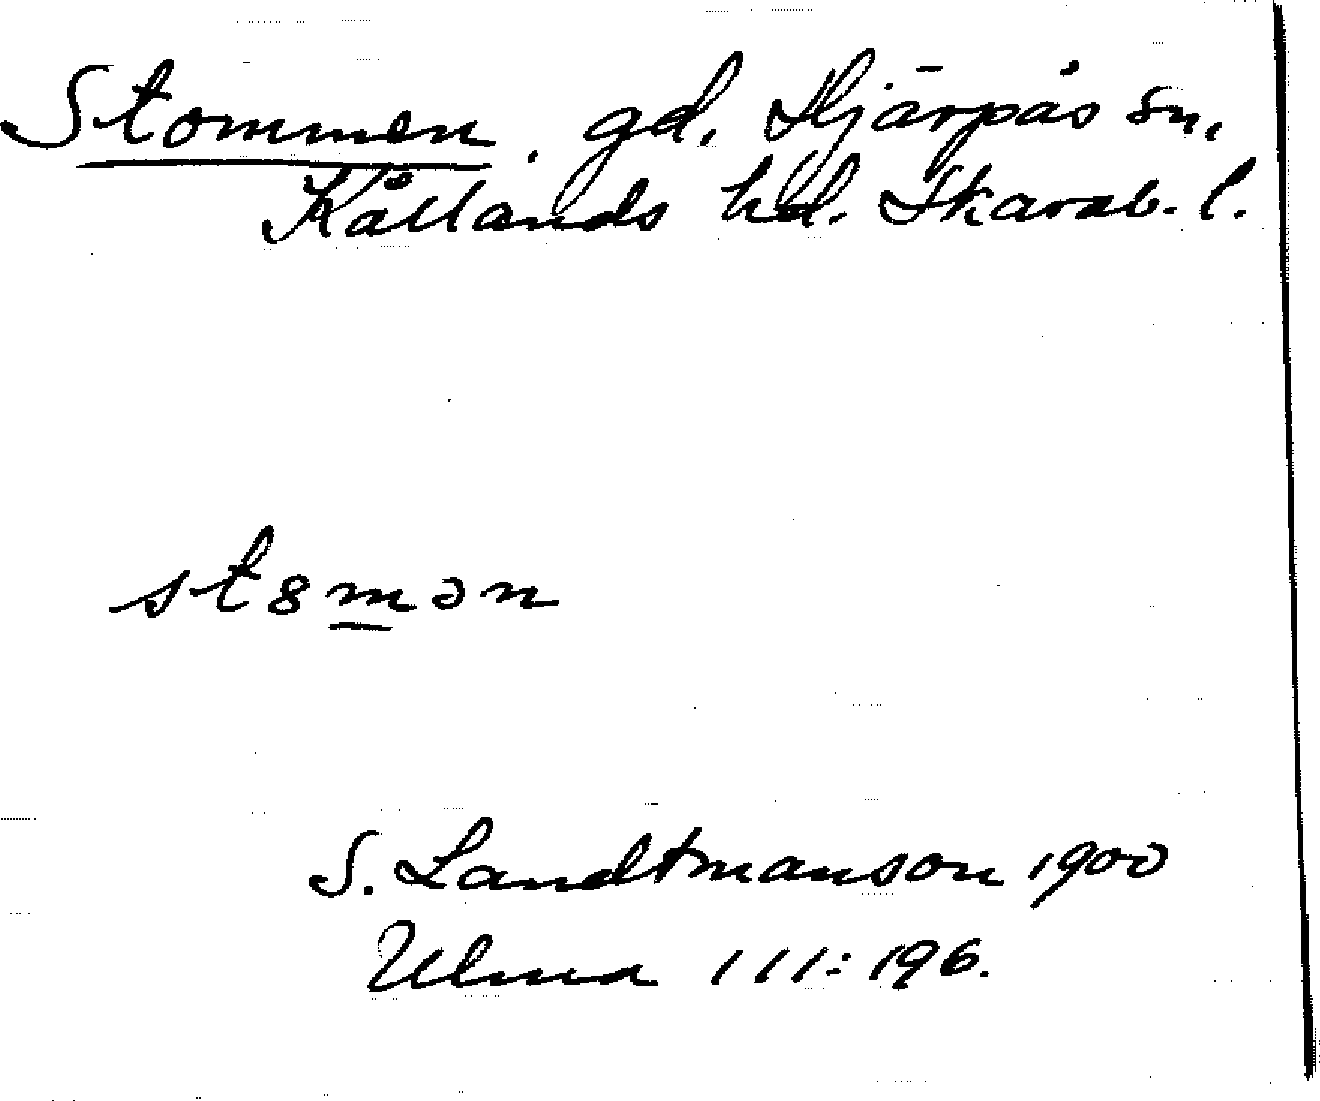 Stommen, gd, Härpås sn,
Kållands hd. Skarab. l.
st8mən
S. Landtmanson 1900
Ulma 111:196.